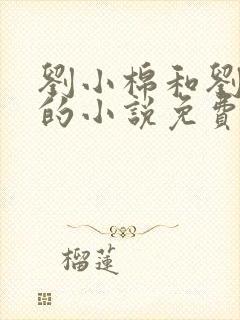 劉小棉和劉
的小說免費
榴蓮